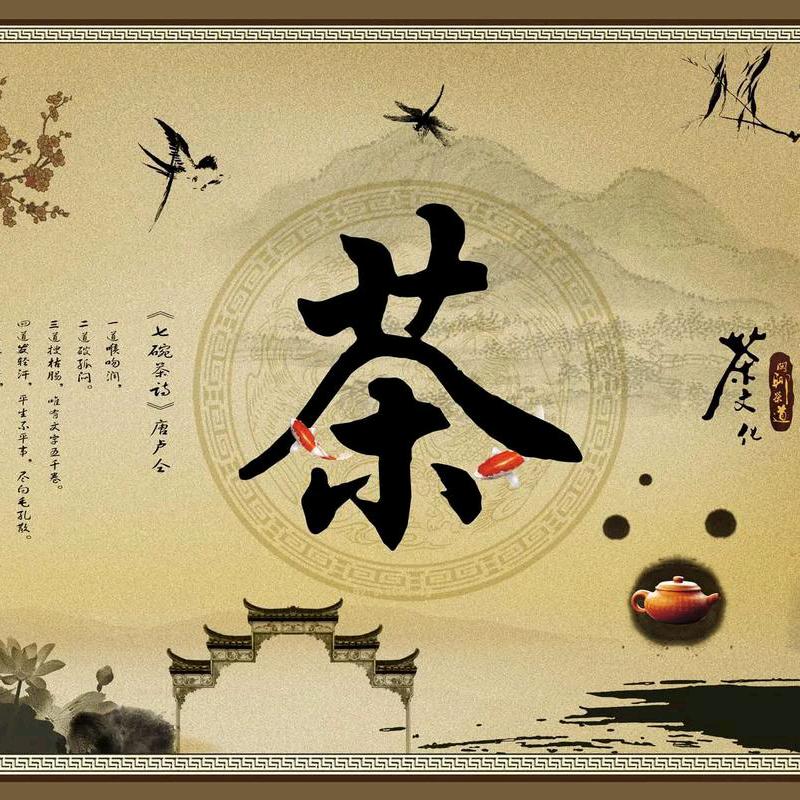 茶
《七碗茶诗》唐卢仝
一道喉吻润，
二道破孤闷。
三道搜枯肠，唯有文字五千卷。
四道发轻汗，平生不平事，尽向毛孔散。
茶文化
茶道